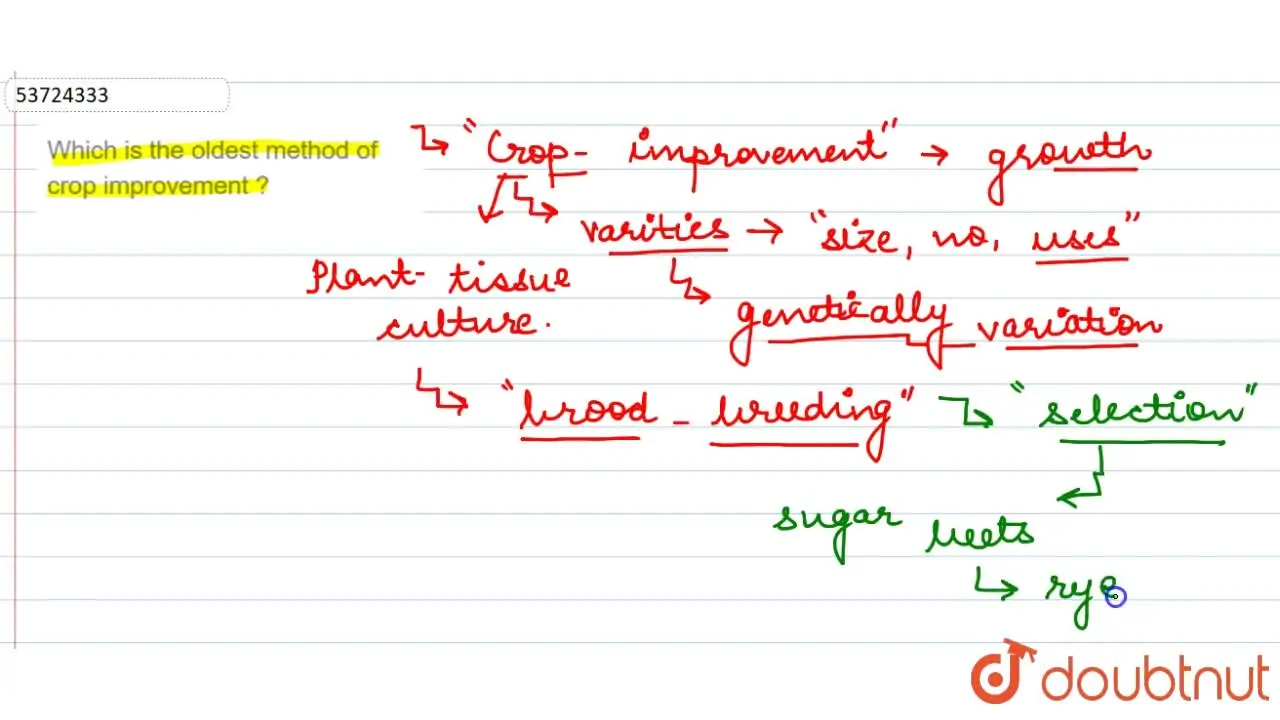 53724333
Which is the oldest method of
crop improvement ?
"Crop- improvement" → growth
varities → "size, no, uses"
Plant- tissue
culture.
genetically variation
"brood - breeding"
"selection"
sugar beets
rye
doubtnut